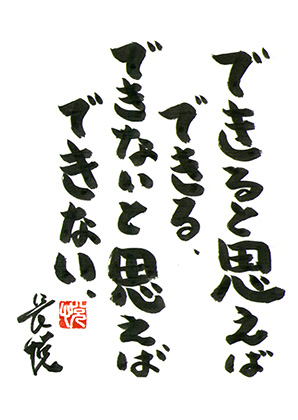 できると思えば
できる、
できないと思えば
できない、